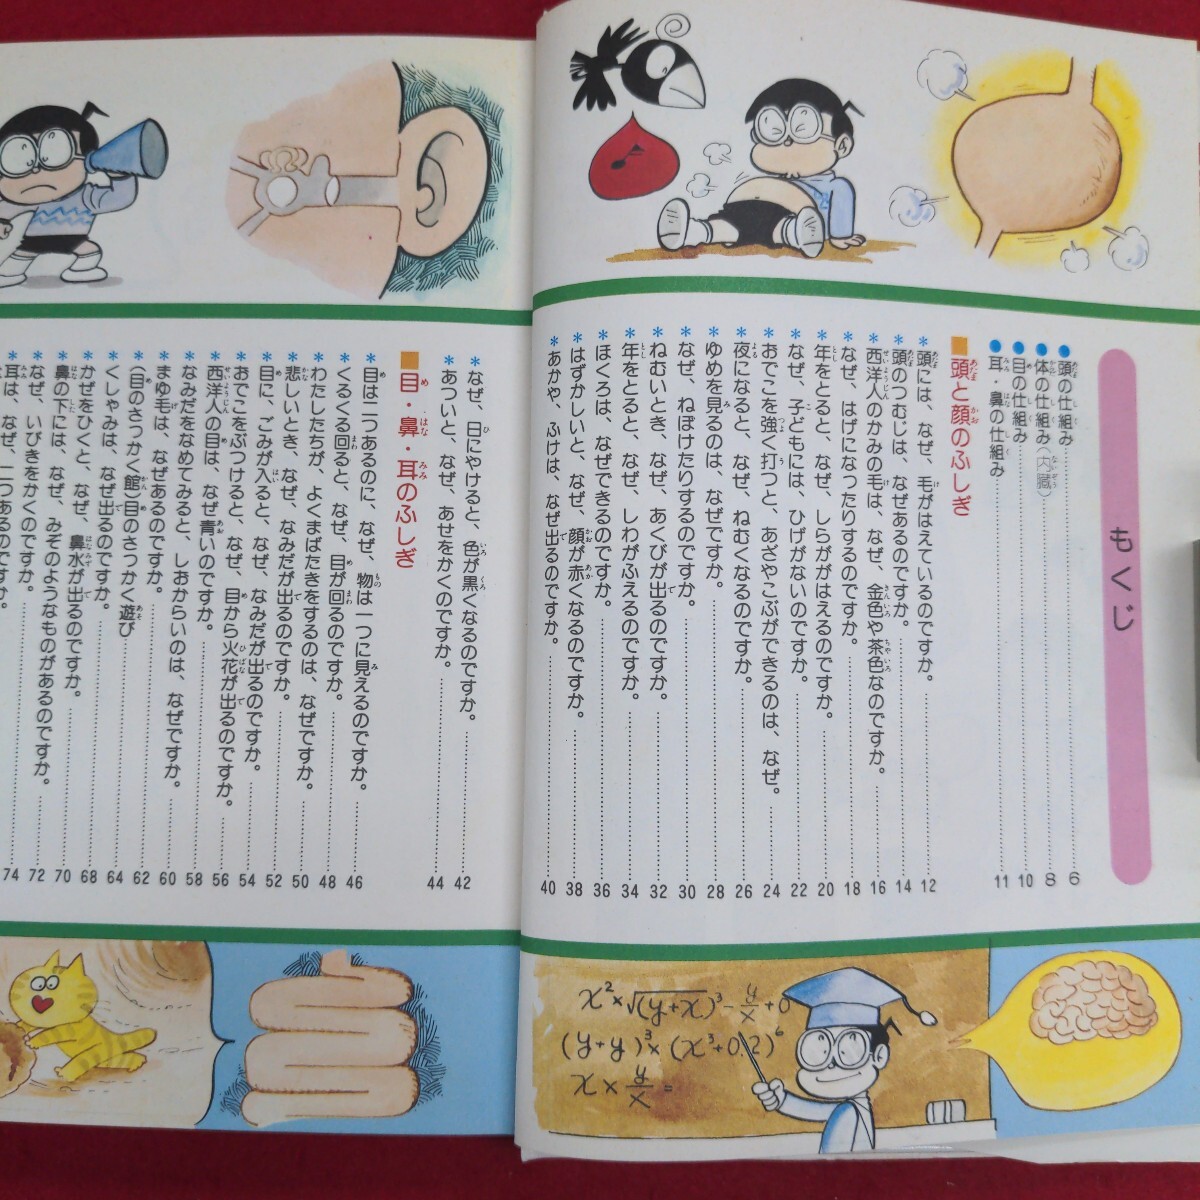 もくじ
●頭の仕組み 6
●体の仕組み(内臓) 8
●目の仕組み 10
●耳・鼻の仕組み 11
■頭と顔のふしぎ
*頭には、なぜ、毛がはえているのですか。 12
*頭のつむじは、なぜあるのですか。 14
*西洋人のかみの毛は、なぜ、金色や茶色なのですか。 16
*なぜ、はげになったりするのですか。 18
*年をとると、なぜ、しらががはえるのですか。 20
*なぜ、子どもには、ひげがないのですか。 22
*おでこを強く打つと、あざやこぶができるのは、なぜ。 24
*夜になると、なぜ、ねむくなるのですか。 26
*ゆめを見るのは、なぜですか。 28
*なぜ、ねぼけたりするのですか。 30
*ねむいとき、なぜ、あくびが出るのですか。 32
*年をとると、なぜ、しわがふえるのですか。 34
*ほくろは、なぜできるのですか。 36
*はずかしいと、なぜ、顔が赤くなるのですか。 38
*あかや、ふけは、なぜ出るのですか。 40
*なぜ、日にやけると、色が黒くなるのですか。 42
*あついと、なぜ、あせをかくのですか。 44
■目・鼻・耳のふしぎ
*目は二つあるのに、なぜ、物は一つに見えるのですか。 46
*くるくる回ると、なぜ、目が回るのですか。 48
*わたしたちが、よくまばたきをするのは、なぜですか。 50
*悲しいとき、なぜ、なみだが出るのですか。 52
*目に、ごみが入ると、なぜ、なみだが出るのですか。 54
*おでこをぶつけると、なぜ、目から火花が出るのですか。 56
*西洋人の目は、なぜ青いのですか。 58
*なみだをなめてみると、しおからいのは、なぜですか。 60
*まゆ毛は、なぜあるのですか。 62
*(目のさっかく館)目のさっかく遊び 64
*くしゃみは、なぜ出るのですか。 68
*かぜをひくと、なぜ、鼻水が出るのですか。 70
*鼻の下には、なぜ、みぞのようなものがあるのですか。 72
*なぜ、いびきをかくのですか。 74
*耳は、なぜ、二つあるのですか。
x²×√(y+x)³−y/x+0
(y+y)³×(x³+0.2)⁶
x×y/x=